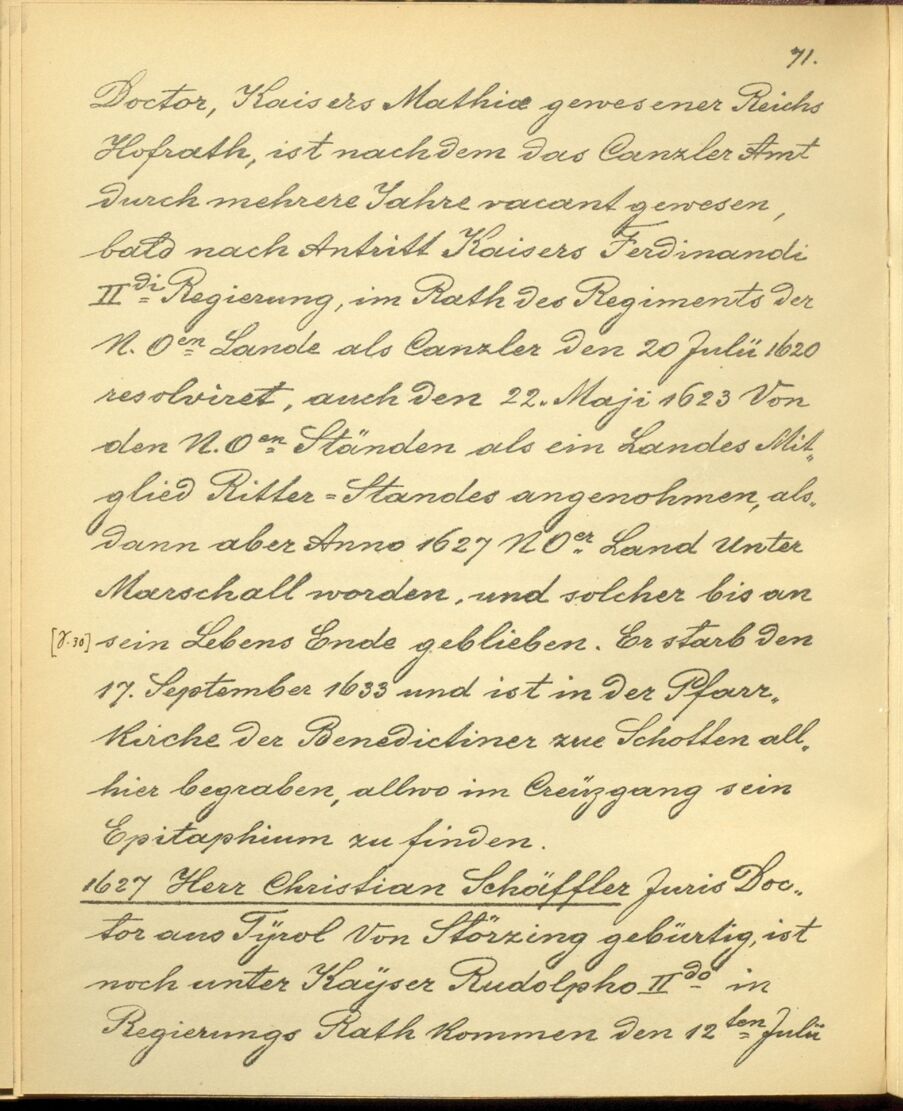 71.
Doctor, Kaisers Mathiæ gewesener Reichs
Hofrath, ist nachdem das Canzler Amt
durch mehrere Jahre vacant gewesen,
bald nach Antritt Kaisers Ferdinandi
II di Regierung, im Rath des Regiments der
N. Oen Lande als Canzler den 20 Julü 1620
resolviret, auch den 22. Maji 1623 Von
den N. Oen Ständen als ein Landes Mit„
glied Ritter=Standes angenohmen, als„
dann aber Anno 1627 N Oer Land Unter
Marschall worden, und solcher bis an
[γ.30] sein Lebens Ende geblieben. Er starb den
17. September 1633 und ist in der Pfarr„
Kirche der Benedictiner zue Schotten all„
hier begraben, allwo im Creüzgang sein
Epitaphium zu finden.
1627 Herr Christian Schäffler Juris Doc„
tor aus Tÿrol Von Störzing gebürtig, ist
noch unter Kaÿser Rudolpho II do in
Regierungs Rath kommen den 12 ten Julü